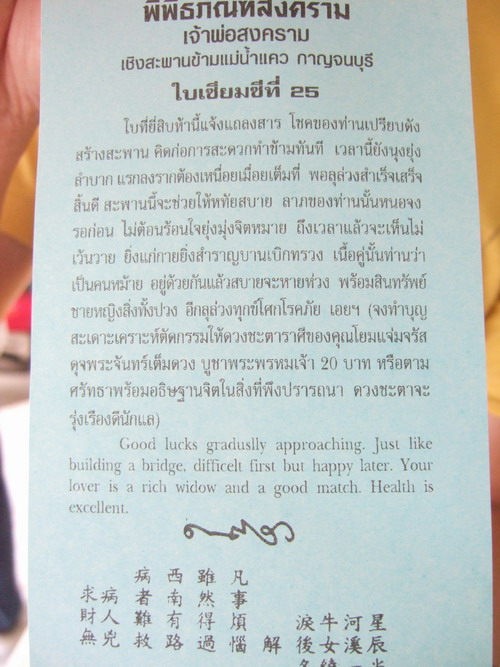 พิพิธภัณฑ์สงคราม
เจ้าพ่อสงคราม
เชิงสะพานข้ามแม่น้ำแคว กาญจนบุรี
ใบเซียมซีที่ 25
ใบที่ยี่สิบห้านี้แจ้งแถลงสาร โชคของท่านเปรียบดัง
สร้างสะพาน คิดก่อการสะดวกทำข้ามทันที เวลานี้ยังนุงยุ่ง
ลำบาก แรกลงรากต้องเหนื่อยเมื่อยเต็มที่ พอลุล่วงสำเร็จเสร็จ
สิ้นดี สะพานนี้จะช่วยให้หทัยสบาย ลาภของท่านนั้นหนอจง
รอก่อน ไม่ต้อนร้อนใจยุ่งมุ่งจิตหมาย ถึงเวลาแล้วจะเห็นไม่
เว้นวาย ยิ่งแก่กายยิ่งสำราญบานเบิกทรวง เนื้อคู่นั้นท่านว่า
เป็นคนหม้าย อยู่ด้วยกันแล้วสบายจะหายห่วง พร้อมสินทรัพย์
ชายหญิงสิ่งทั้งปวง อีกลุล่วงทุกข์โศกโรคภัย เอยฯ (จงทำบุญ
สะเดาะเคราะห์ตัดกรรมให้ดวงชะตาราศีของคุณโยมแจ่มจรัส
ดุจพระจันทร์เต็มดวง บูชาพระพรหมเจ้า 20 บาท หรือตาม
ศรัทธาพร้อมอธิษฐานจิตในสิ่งที่พึงปรารถนา ดวงชะตาจะ
รุ่งเรืองดีนักแล)
Good lucks graduslly approaching. Just like
building a bridge, difficelt first but happy later. Your
lover is a rich widow and a good match. Health is
excellent.
星河牛淚
辰溪女後
解
凡事煩惱
雖然得過
西南有路
病者難救
病人兇
求財無